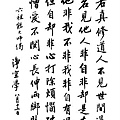 若真修道人不見世間過
若見他人非自非却是左
他非我不非我非自有過
但自却非心打除煩惱破
憎愛不關心長伸兩腳臥
六祖大師偈
淨空